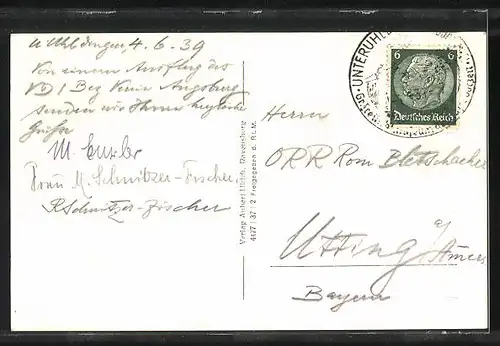 Uhldingen, 4. 6. 39
Von einem Ausflug des
Bez Verein Augsburg
senden wir Ihnen herzliche
Grüße
M.
Frau M. Schnitzer-Fischer.
R Schnitzer-Fischer
Verlag Aubert Ulrich, Ravensburg
4177 | 37 | 2 Freigegeben d. R.L.M.
UNTERUHLD
6 6
Deutsches Reich
Herrn
ORR Rom Bletschacher
Utting a/
Ammers
Bayern